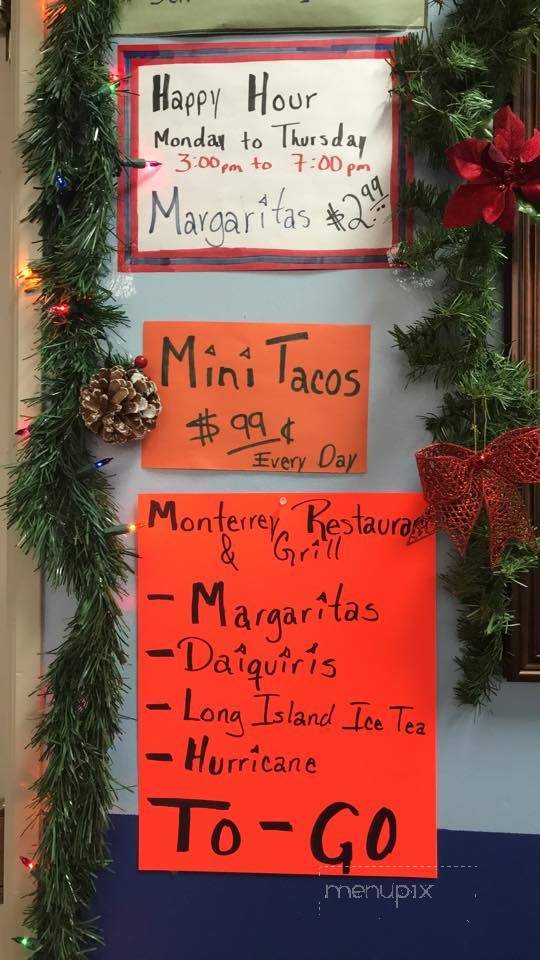 Happy Hour
Monday to Thursday
3:00pm to 7:00pm
Margaritas $2.99
Mini Tacos
$ 99 ¢
Every Day
Monterrey Restaurant
& Grill
- Margaritas
- Daiquiris
- Long Island Ice Tea
- Hurricane
To-Go
menupix